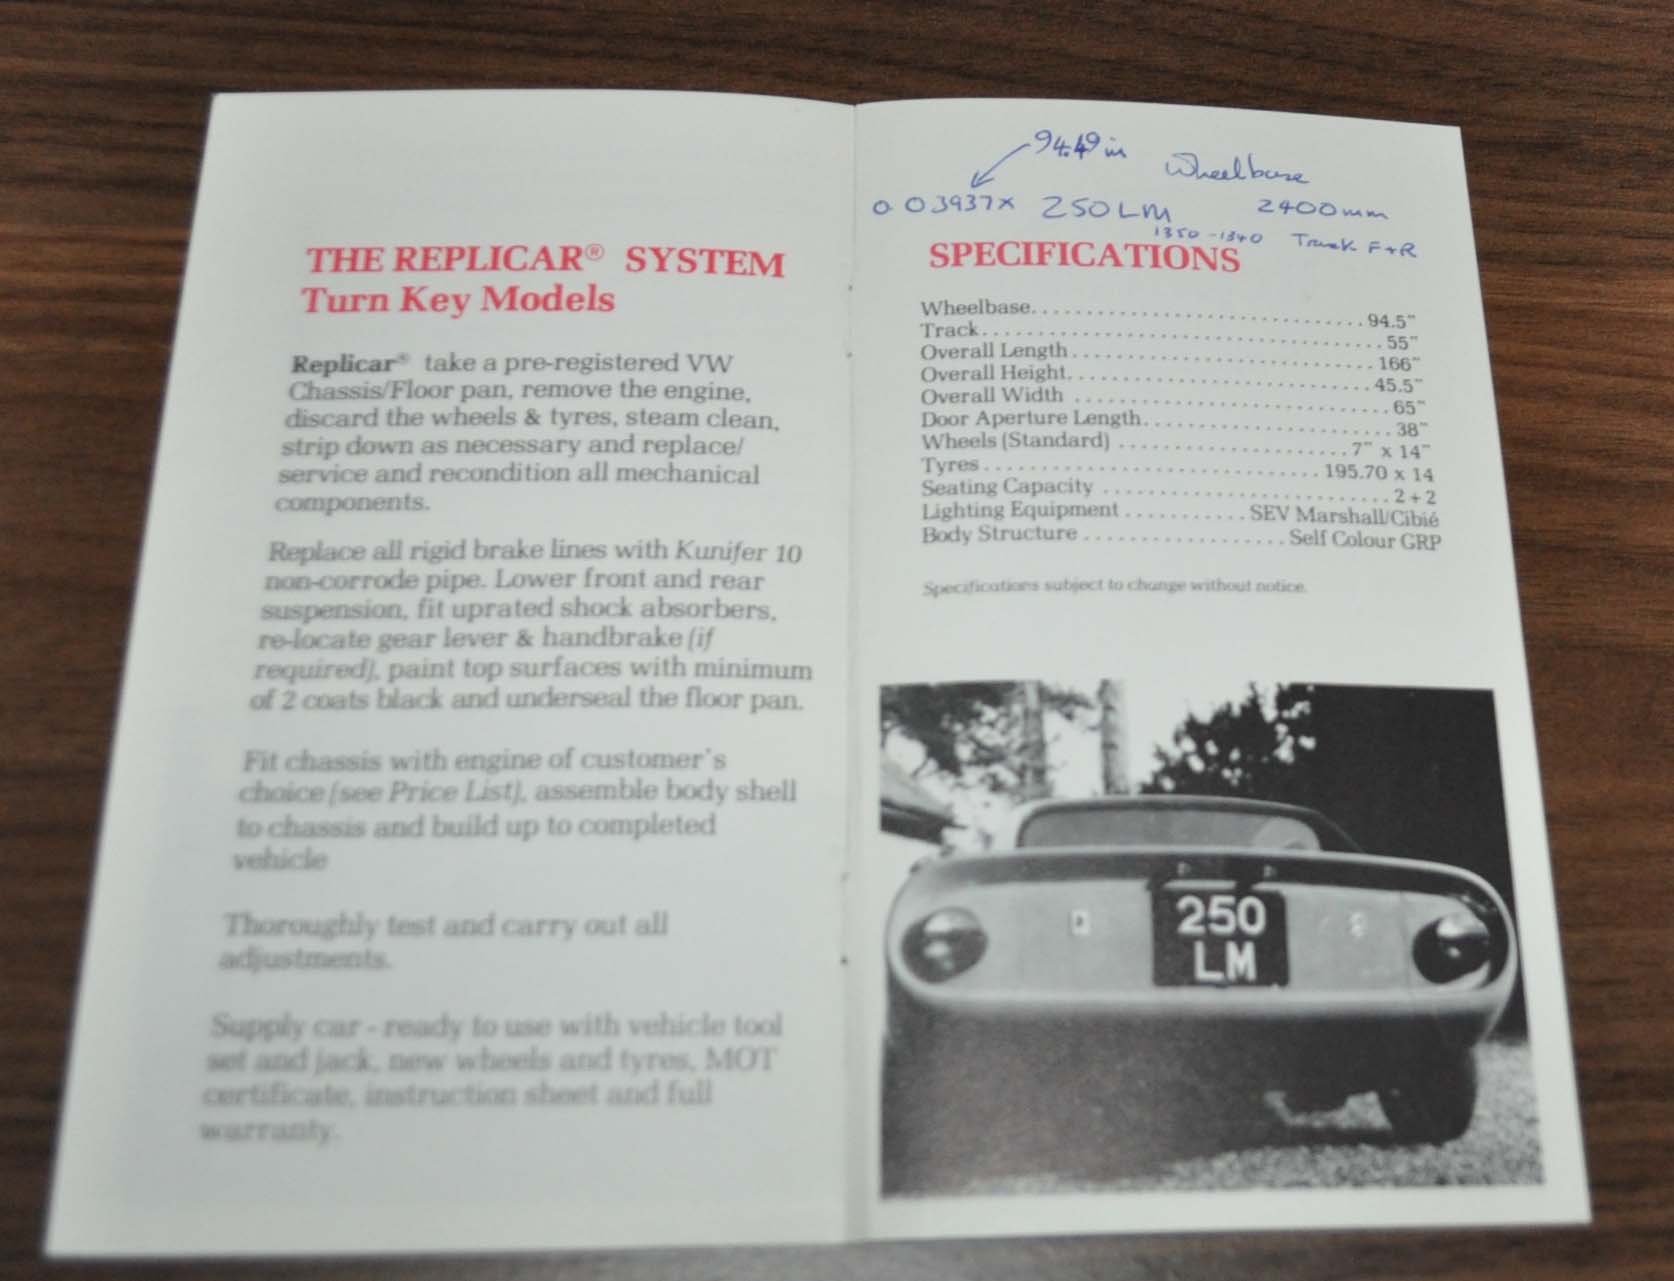 THE REPLICAR® SYSTEM
Turn Key Models
Replicar® take a pre-registered VW
Chassis/Floor pan, remove the engine,
discard the wheels & tyres, steam clean,
strip down as necessary and replace/
service and recondition all mechanical
components.
Replace all rigid brake lines with Kunifer 10
non-corrode pipe. Lower front and rear
suspension, fit uprated shock absorbers,
re-locate gear lever & handbrake (if
required), paint top surfaces with minimum
of 2 coats black and underseal the floor pan.
Fit chassis with engine of customer's
choice (see Price List), assemble body shell
to chassis and build up to completed
vehicle
Thoroughly test and carry out all
adjustments.
Supply car - ready to use with vehicle tool
set and jack, new wheels and tyres, MOT
certificate, instruction sheet and full
warranty.
94.49 in Wheelbase
0.03937 x 250LM 2400mm
1350 - 1340 Track F+R
SPECIFICATIONS
Wheelbase. . . . . . . . . . . . . . . . . . . . . . . . 94.5"
Track . . . . . . . . . . . . . . . . . . . . . . . . 55"
Overall Length . . . . . . . . . . . . . . . . . . . . . . . . 166"
Overall Height. . . . . . . . . . . . . . . . . . . . . . . . 45.5"
Overall Width . . . . . . . . . . . . . . . . . . . . . . . . 65"
Door Aperture Length. . . . . . . . . . . . . . . . . . . . 38"
Wheels (Standard) . . . . . . . . . . . . . . . . . . . . 7" x 14"
Tyres . . . . . . . . . . . . . . . . . . . . . . . . 195.70 x 14
Seating Capacity . . . . . . . . . . . . . . . . . . . . . . . . 2 + 2
Lighting Equipment . . . . . . . . . . . SEV Marshall/Cibié
Body Structure . . . . . . . . . . . . . . . . . . Self Colour GRP
Specifications subject to change without notice.
250
LM